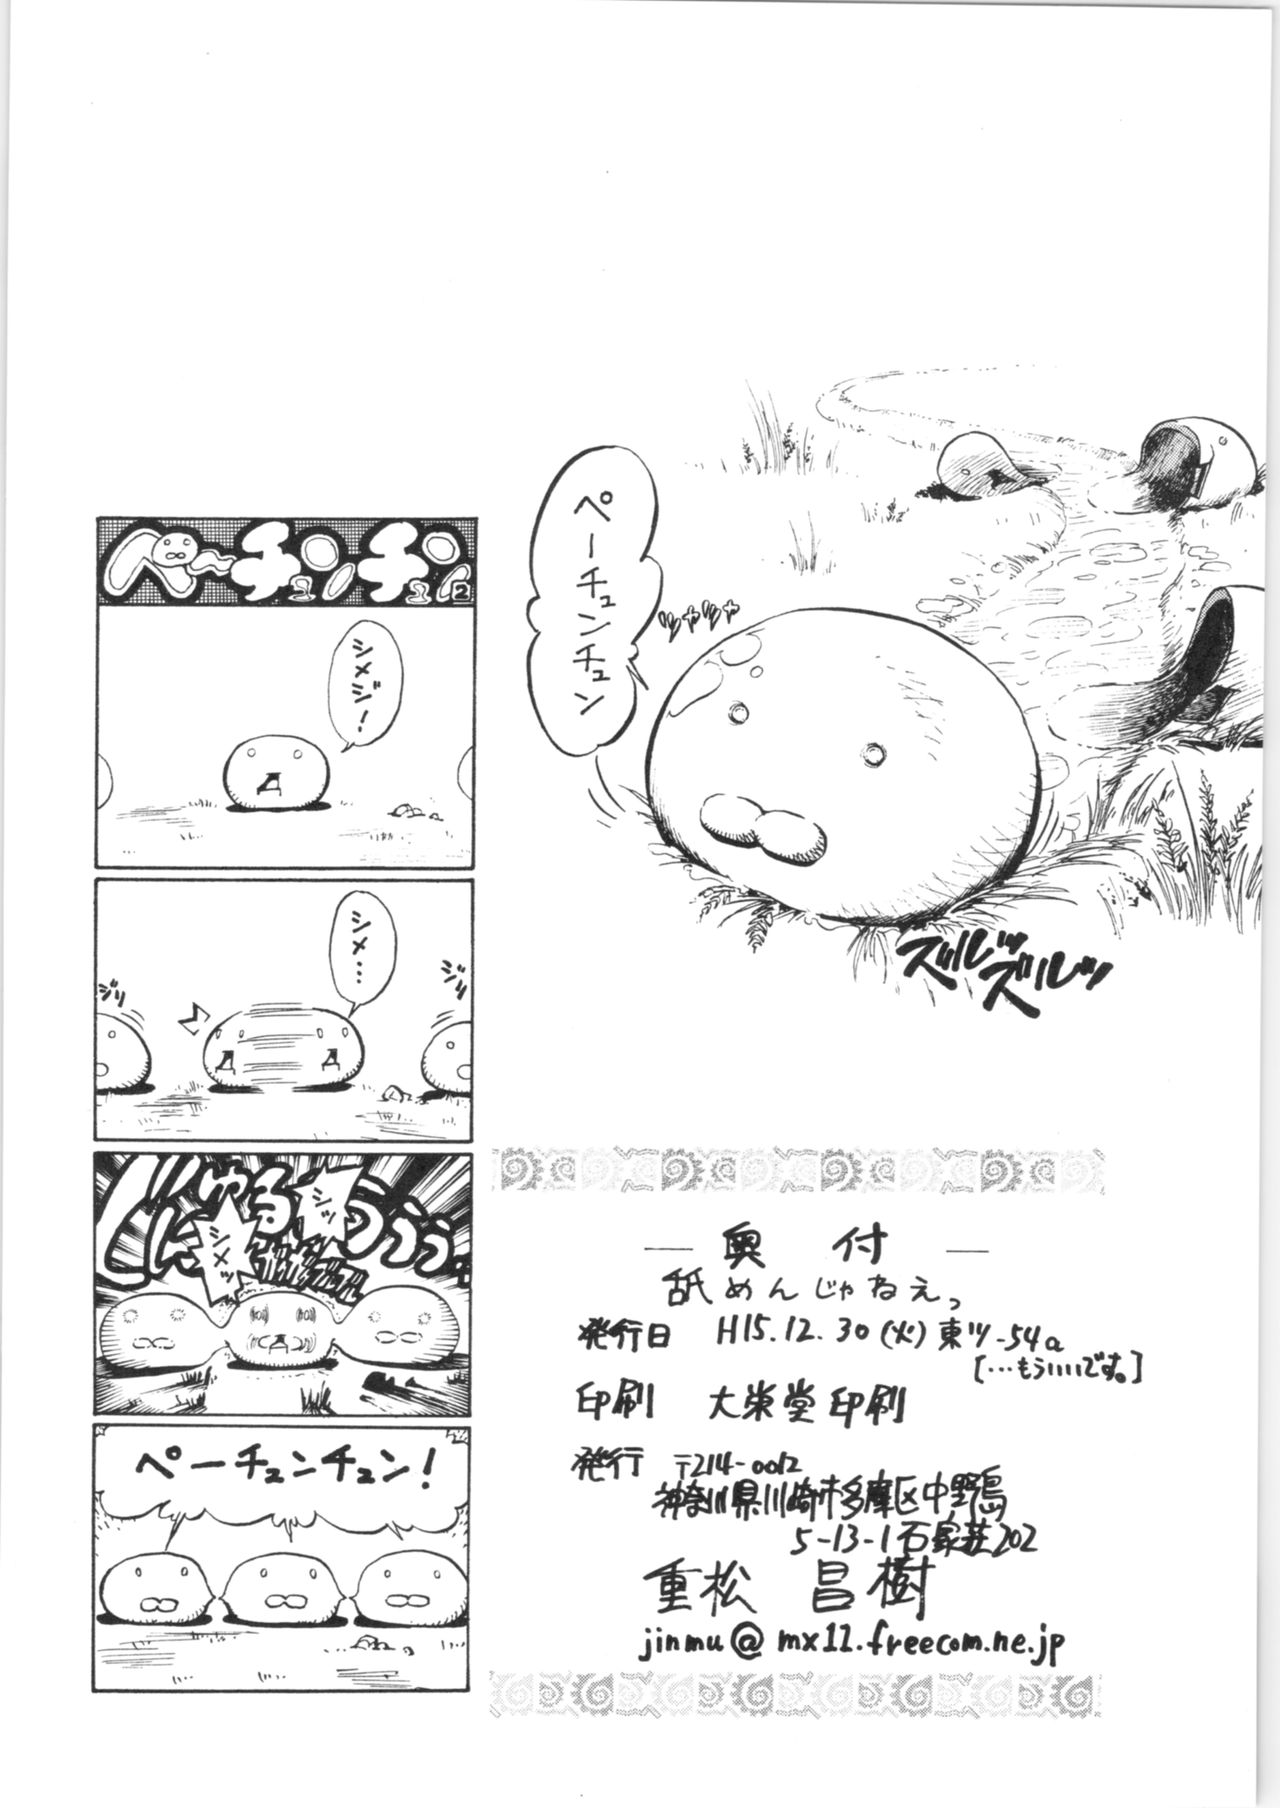 ペーチュンチュン
ツヤツヤ
ズルッ
ズルッ
ペーチュンチュン2
シメジ!
シメ…
ジリ
ジリ
シメッ
シッ
ペーチュンチュン!
奥付
舐めんじゃねえっ
発行日 H15.12.30(火)東ツ-54a
[…もういいです。]
印刷 大栄堂印刷
発行 〒214-0012
神奈川県川崎市多摩区中野島
5-13-1石家荘202
重松 昌樹
jinmu@mx12.freecom.ne.jp